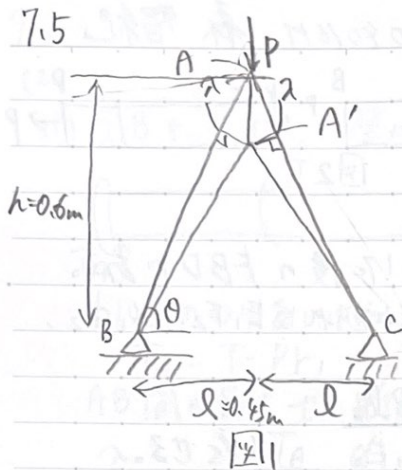 7.5
A P
λ λ
A'
h=0.6m
B θ C
l=0.45m l
図1